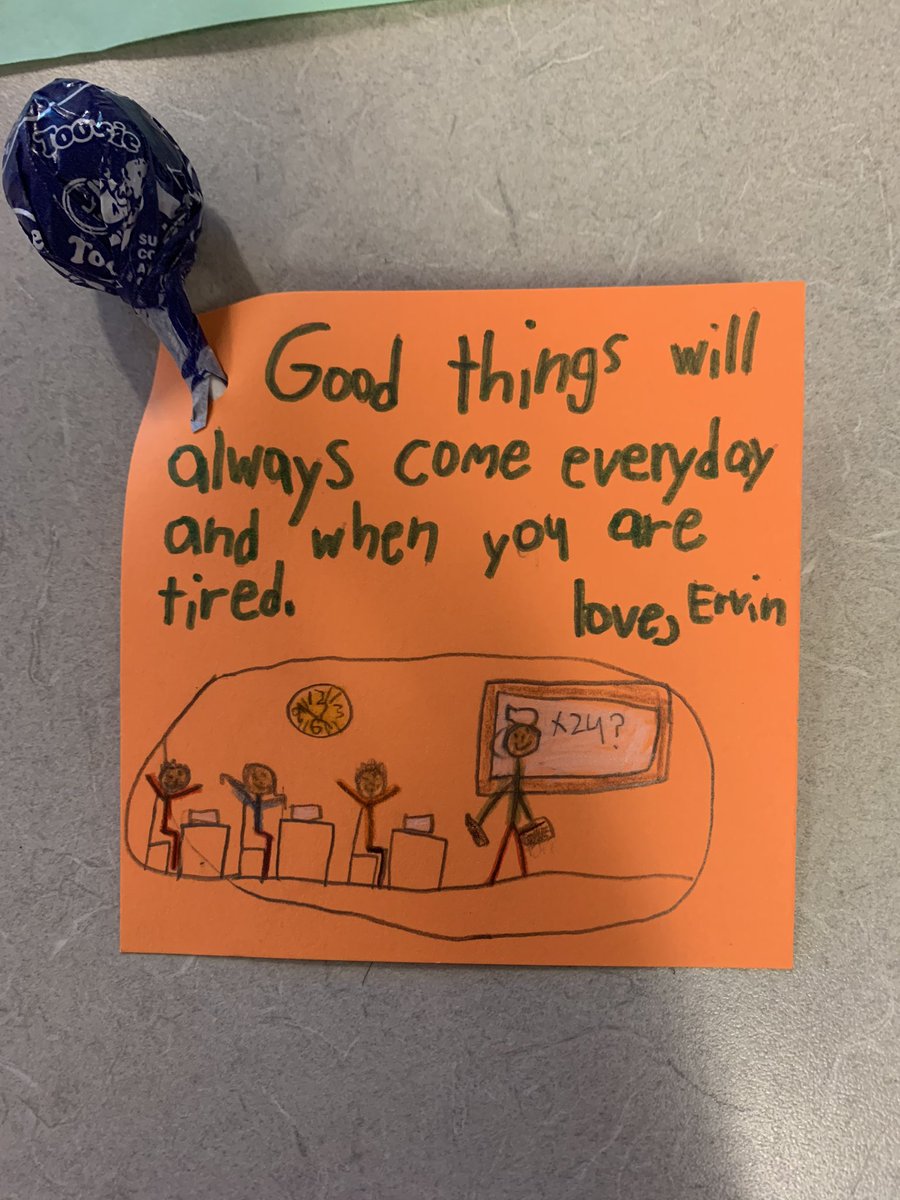 Tootsie
Good things will
always come everyday
and when you are
tired.
love, Ervin
x24?